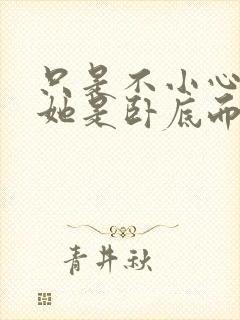 只是不小心
她是卧底而
青井秋